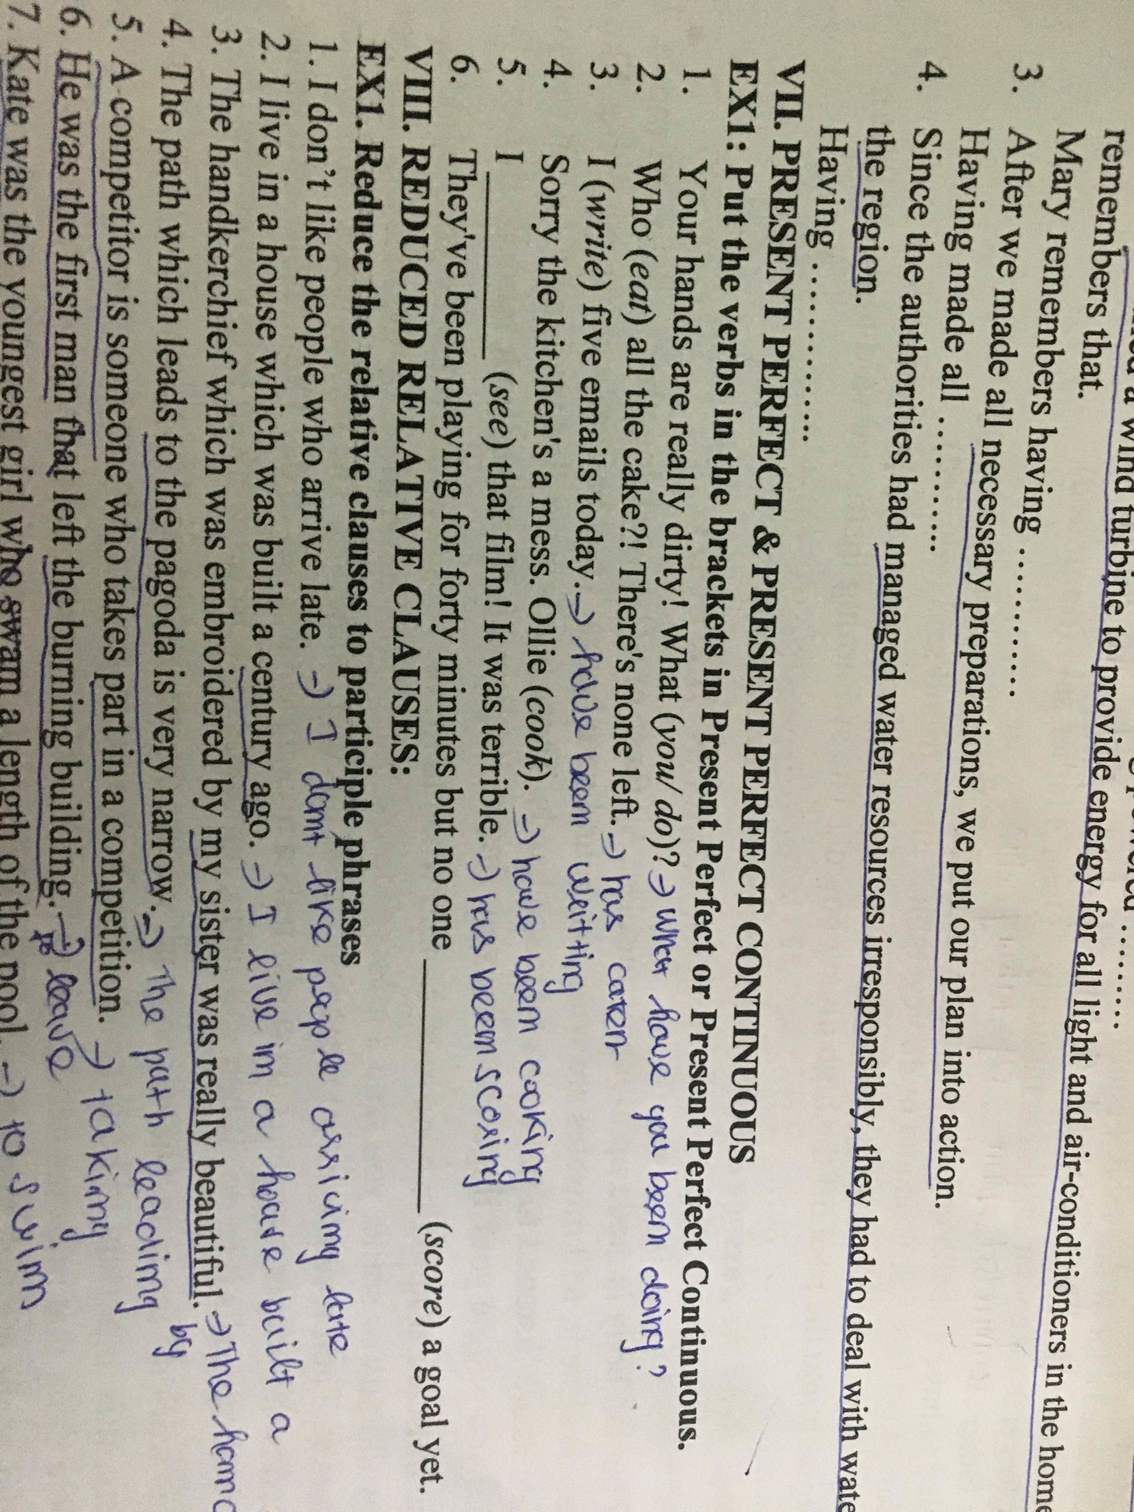 a wind turbine to provide energy for all light and air-conditioners in the home
remembers that.
Mary remembers having ............
3. After we made all necessary preparations, we put our plan into action.
Having made all ............
4. Since the authorities had managed water resources irresponsibly, they had to deal with wate
the region.
Having ............
VII. PRESENT PERFECT & PRESENT PERFECT CONTINUOUS
EX1: Put the verbs in the brackets in Present Perfect or Present Perfect Continuous.
1. Your hands are really dirty! What (you/ do)? → what have you been doing?
2. Who (eat) all the cake?! There's none left. → has eaten
3. I (write) five emails today. → have been writting
4. Sorry the kitchen's a mess. Ollie (cook). → have been cooking
5. I __________ (see) that film! It was terrible. → has been scoring
6. They've been playing for forty minutes but no one __________ (score) a goal yet.
VIII. REDUCED RELATIVE CLAUSES:
EX1. Reduce the relative clauses to participle phrases
1. I don't like people who arrive late. → I dont like people arriving late
2. I live in a house which was built a century ago. → I live in a house built a
3. The handkerchief which was embroidered by my sister was really beautiful. → The hand
by
4. The path which leads to the pagoda is very narrow. → The path leading
5. A competitor is someone who takes part in a competition. → taking
6. He was the first man that left the burning building. → to leave
7. Kate was the youngest girl who swam a length of the pool. → to swim